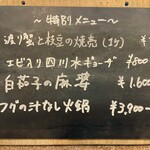 〜特別メニュー〜
渡り蟹と枝豆の焼売(1ケ) ¥
エビ入り四川水ギョーザ ¥800
白茄子の麻婆 ¥1.600
フグの汁なし火鍋 ¥3,900-